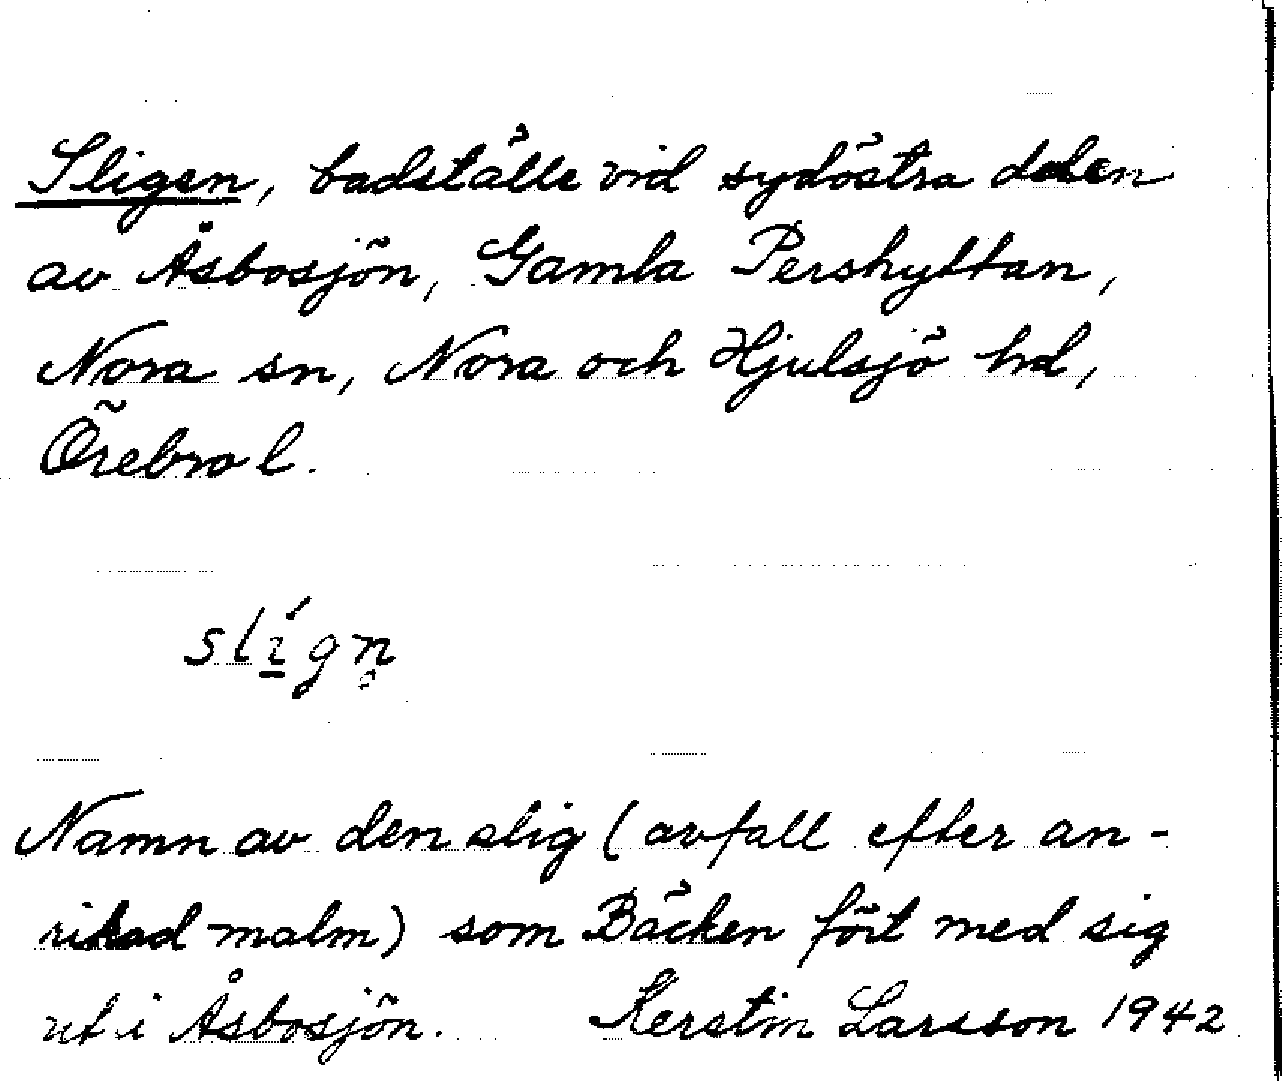 Sligen, badställe vid sydöstra delen
av Åsbosjön, Gamla Pershyttan,
Nora sn, Nora och Hjulsjö hd,
Örebro l.
slí̱gn̥
Namn av den slig (avfall efter an-
rikad malm) som Bäcken fört med sig
ut i Åsbosjön. Kerstin Larsson 1942